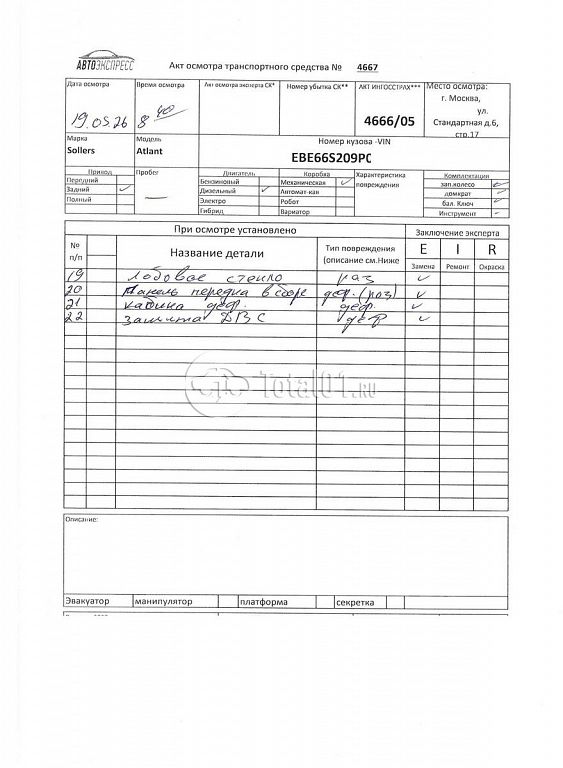 АВТОЭКСПРЕСС
Акт осмотра транспортного средства № 4667
Дата осмотра
19.05.26
Время осмотра
8 40
Акт осмотра эксперта СК*
Номер убытка СК**
АКТ ИНГОССТРАХ***
4666/05
Место осмотра:
г. Москва,
ул.
Стандартная д.6,
стр.17
Марка
Sollers
Модель
Atlant
Номер кузова -VIN
EBE66S209PC
Привод
Передний
Задний
Полный
Пробег
—
Двигатель
Бензиновый
Дизельный
Электро
Гибрид
Коробка
Механическая
Автомат-кая
Робот
Вариатор
Характеристика
повреждения
Комплектация
зап.колесо
домкрат
бал. Ключ
Инструмент
При осмотре установлено
Заключение эксперта
№
п/п
Название детали
Тип повреждения
(описание см.Ниже
E I R
Замена Ремонт Окраска
19 Лобовое стекло раз
20 Панель передка в сборе деф. (раз)
21 кабина деф. деф.
22 защита ДВС деф
Total01.ru
Описание:
Эвакуатор манипулятор платформа секретка